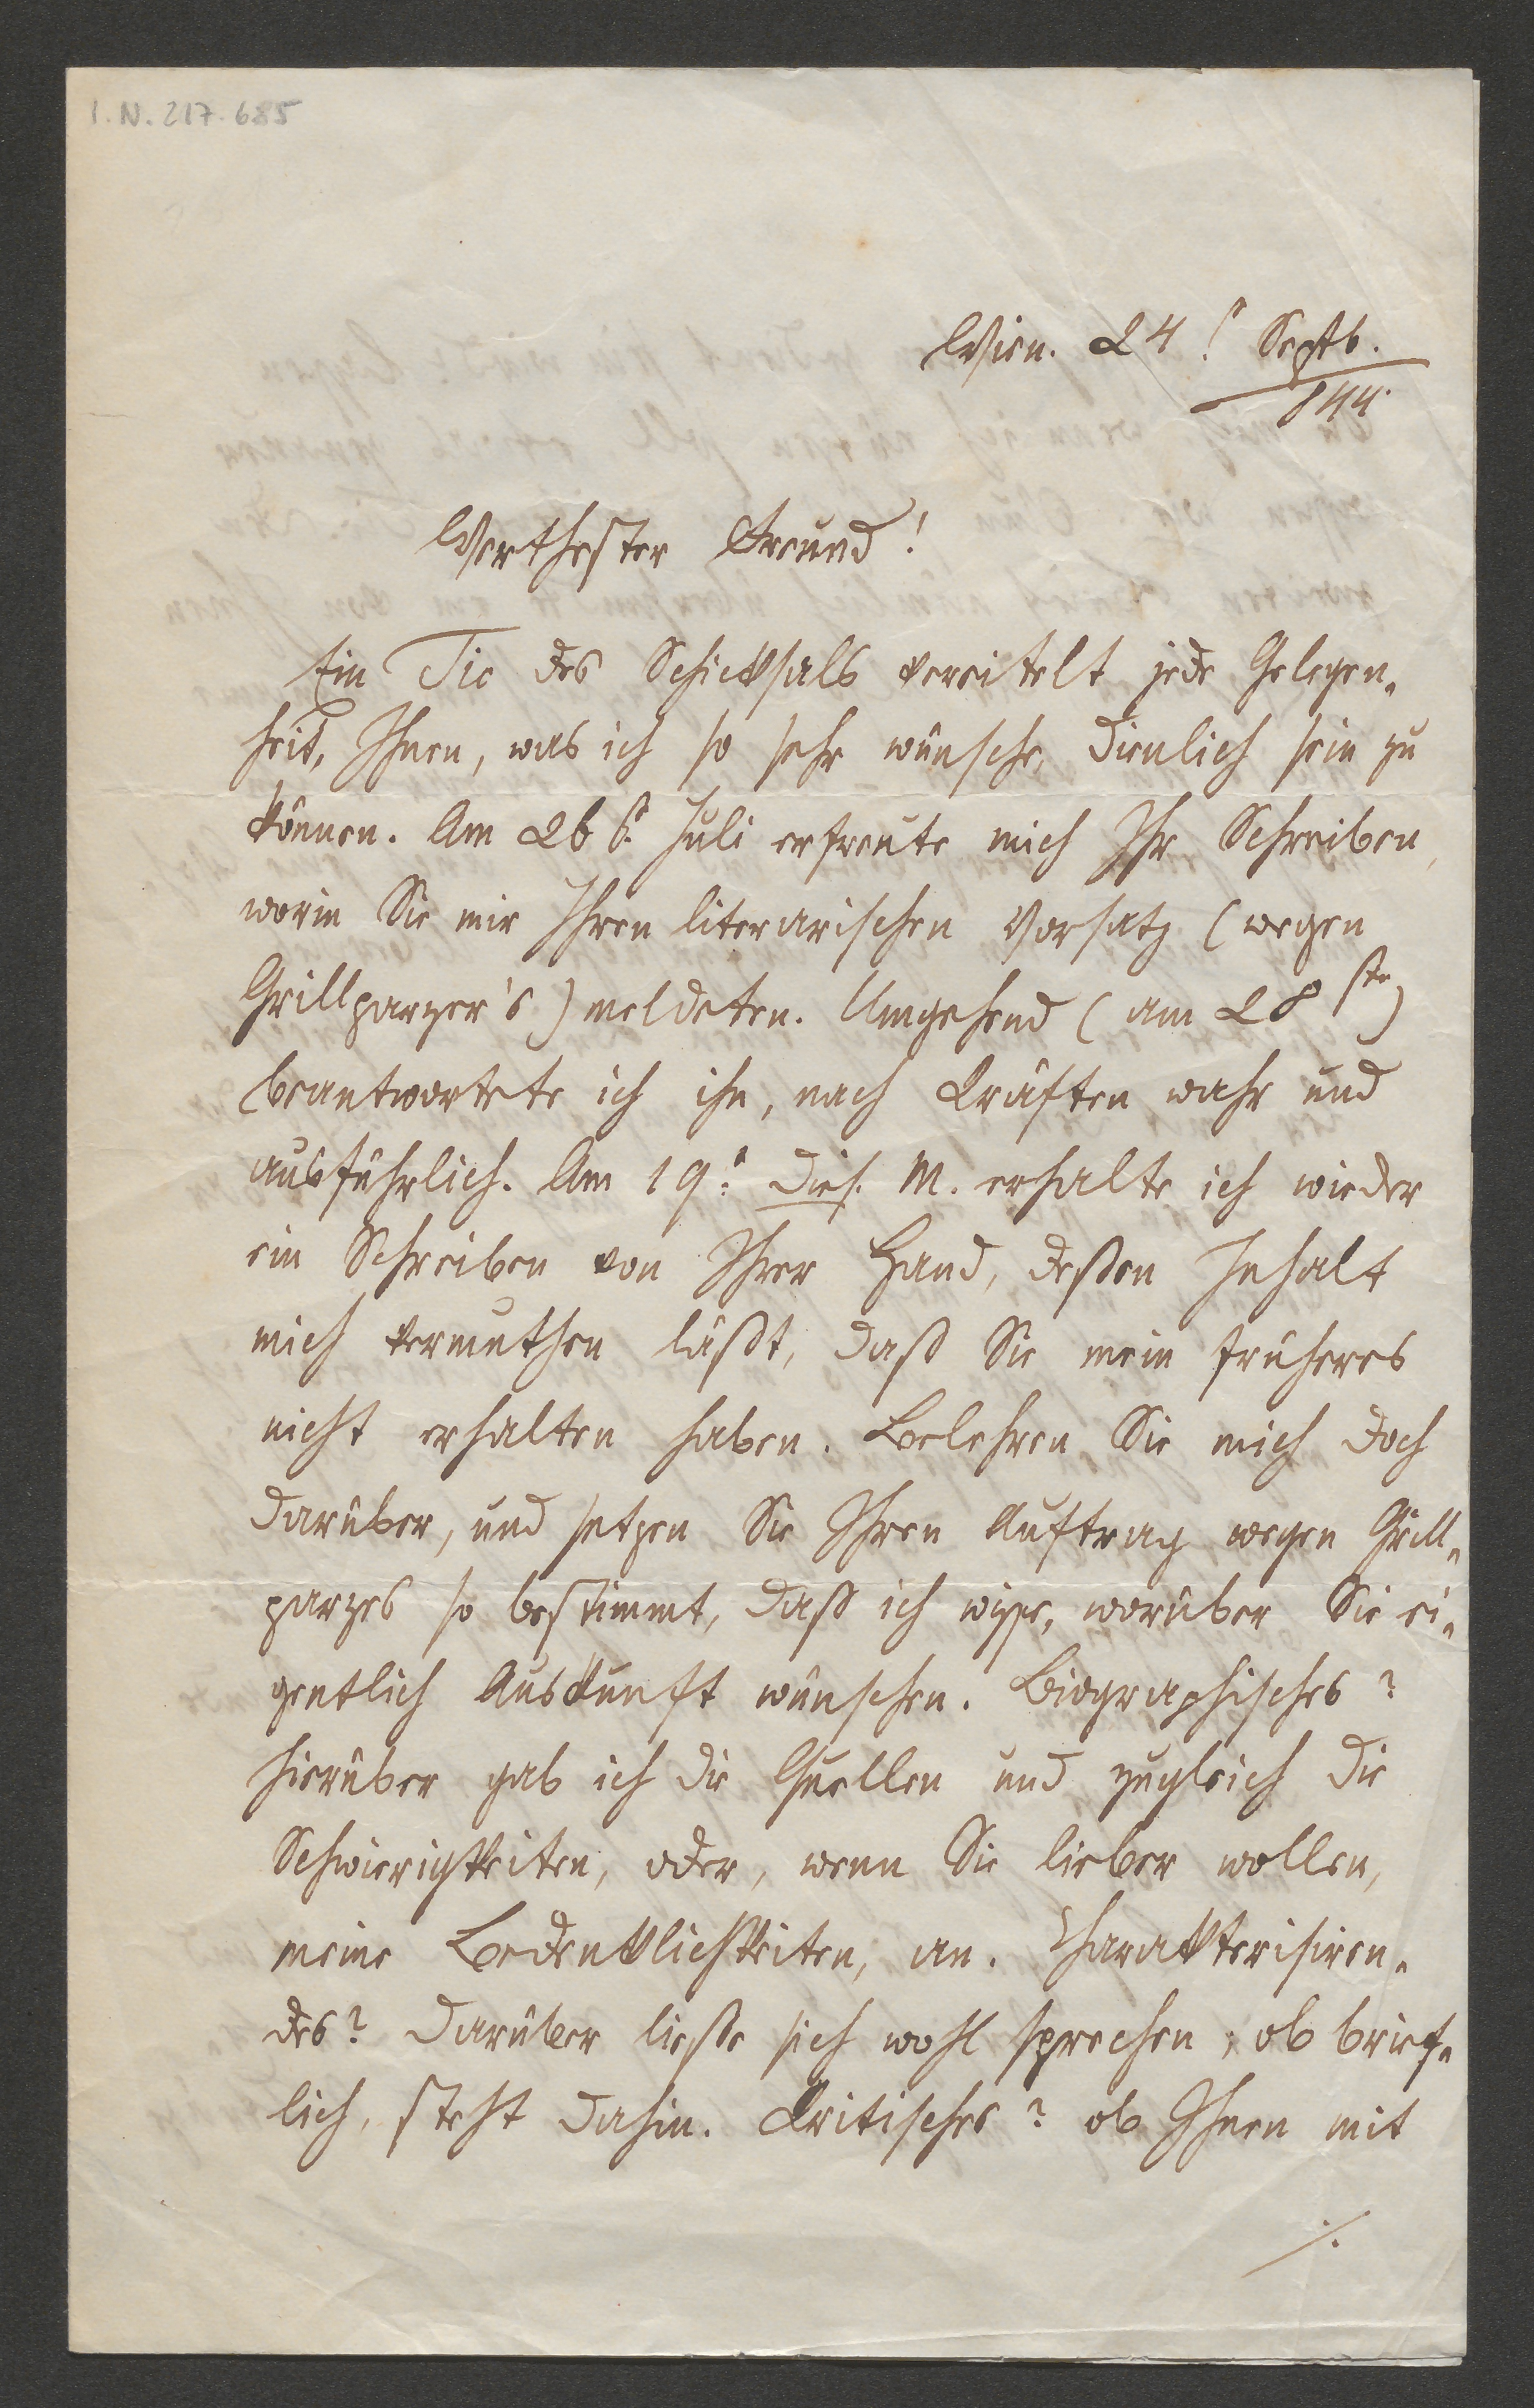 I. N. 217.685
Wien. 24! Septb.
844.
Werthester Freund!
Ein Tic des Schicksals vereitelt jede Gelegen-
heit, Ihnen, was ich so sehr wünsche, dienlich sein zu
können. Am 26t. Juli erfreute mich Ihr Schreiben,
worin Sie mir Ihren literarischen Vorsatz (wegen
Grillparzer's) meldeten. Umgehend (am 28ste)
beantwortete ich ihn, nach Kräften wahr und
ausführlich. Am 19t. dies. M. erhalte ich wieder
ein Schreiben von Ihrer Hand, deßen Inhalt
mich vermuthen läßt, daß Sie mein früheres
nicht erhalten haben. Belehren Sie mich doch
darüber, und setzen Sie Ihren Auftrag wegen Grill-
parzes so bestimmt, daß ich wisse, worüber Sie ei-
gentlich Auskunft wünschen. Biographisches?
hierüber gab ich die Quellen und zugleich die
Schwierigkeiten, oder, wenn Sie lieber wollen,
meine Bedenklichkeiten, an. Charakterisiren-
des? darüber ließe sich wohl sprechen; ob brief-
lich, steht dahin. Kritisches? ob Ihnen mit
./.